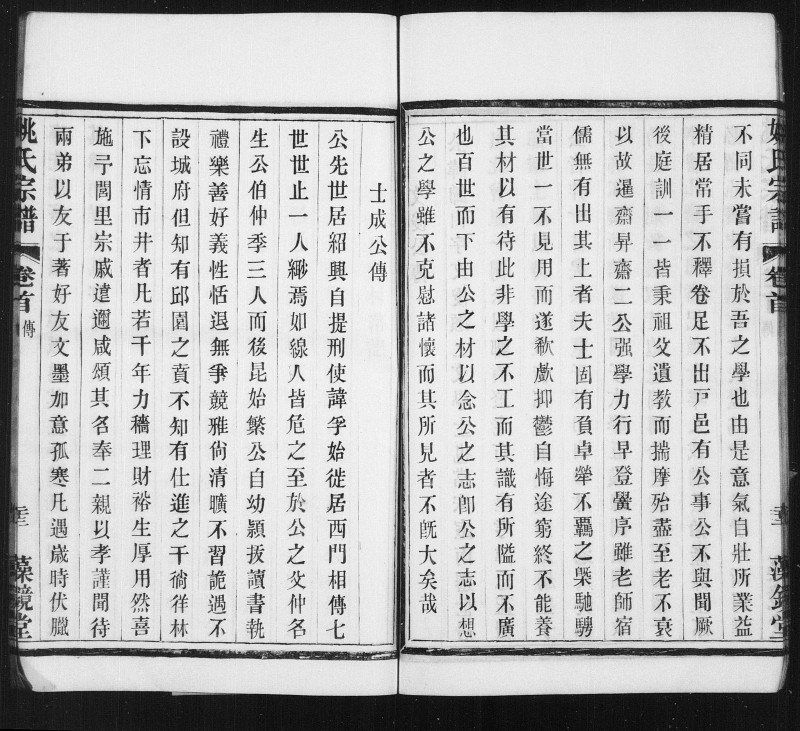 不同未嘗有損於吾之學也由是意氣自壯所業益
精居常手不釋卷足不出戸邑有公事公不與聞厥
後庭訓一一皆秉祖父遺教而揣摩殆盡至老不衰
以故暹齋昇齋二公强學力行早登黌序雖老師宿
儒無有出其上者夫士固有負卓犖不羈之槩馳騁
當世一不見用而遂欷歔抑鬱自悔途窮終不能養
其材以有待此非學之不工而其識有所隘而不廣
也百世而下由公之材以念公之志卽公之志以想
公之學雖不克慰諸懷而其所見者不旣大矣哉
士成公傳
公先世居紹興自提刑使諱孚始徙居西門相傳七
世世止一人緲焉如線人皆危之至於公之父仲名
生公伯仲季三人而後昆始繁公自幼穎拔讀書執
禮樂善好義性恬退無爭競雅尙清曠不習詭遇不
設城府但知有邱園之賁不知有仕進之干徜徉林
下忘情市井者凡若干年力穡理財裕生厚用然喜
施予閭里宗戚遠邇咸頌其名奉二親以孝謹聞待
兩弟以友于著好友文墨加意孤寒凡遇歲時伏臘
姚氏宗譜
卷首
傳
藻鏡堂